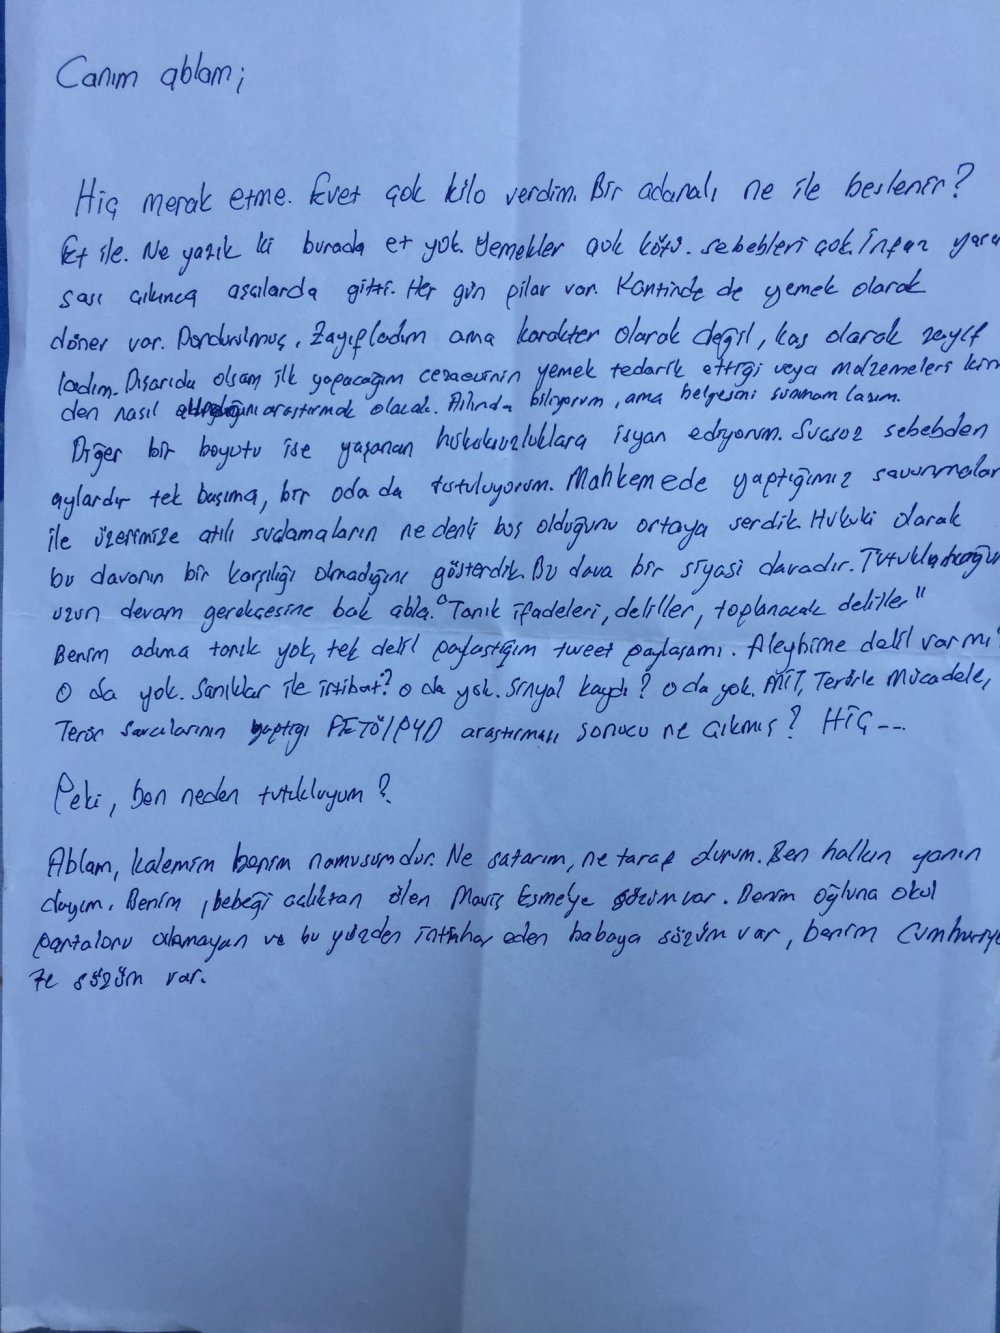 Canım ablam;
Hiç merak etme. Evet çok kilo verdim. Bir adanalı ne ile beslenir?
Et ile. Ne yazık ki burada et yok. Yemekler çok kötü. sebebleri çok. İnfaz yasa
sası çıkınca aşcılarda gitti. Her gün pilav var. Kantinde de yemek olarak
döner var. Dondurulmuş. Zayıfladım ama karakter olarak değil, kas olarak zayıf
ladım. Dışarıda olsam ilk yapacağım cezaevinin yemek tedarik ettiği veya malzemeleri kim
den nasıl araştırmak olacak. Aslında biliyorum, ama belgesini sunmam lazım.
Diğer bir boyutu ise yaşanan hukuksuzluklara isyan ediyorum. Suçsuz sebebden
aylardır tek başıma, bir oda da tutuluyorum. Mahkemede yaptığımız savunmalar
ile üzerimize atılı suçlamaların ne denli boş olduğunu ortaya serdik. Hukuki olarak
bu davanın bir karşılığı olmadığını gösterdik. Bu dava bir siyasi davadır.
uzun devam gerekçesine bak abla. "Tanık ifadeleri, deliller, toplanacak deliller"
Benim adıma tanık yok, tek delil paylaştığım tweet paylaşımı. Aleyhime delil var mı?
O da yok. Sanıklar ile irtibat? o da yok. Sinyal kaydı? o da yok. MİT, Terörle Mücadele,
Terör Savcılarının yaptığı FETÖ/PYD araştırması sonucu ne çıkmış? HİÇ---
Peki, ben neden tutukluyum?
Ablam, kalemim benim namusumdur. Ne satarım, ne taraf olurum. Ben halkın yanın
dayım. Benim, bebeği açlıktan ölen Maviş Esme'ye sözüm var. Benim oğluna okul
pantalonu alamayan ve bu yüzden intihar eden babaya sözüm var, benim Cumhuriye
te sözüm var.